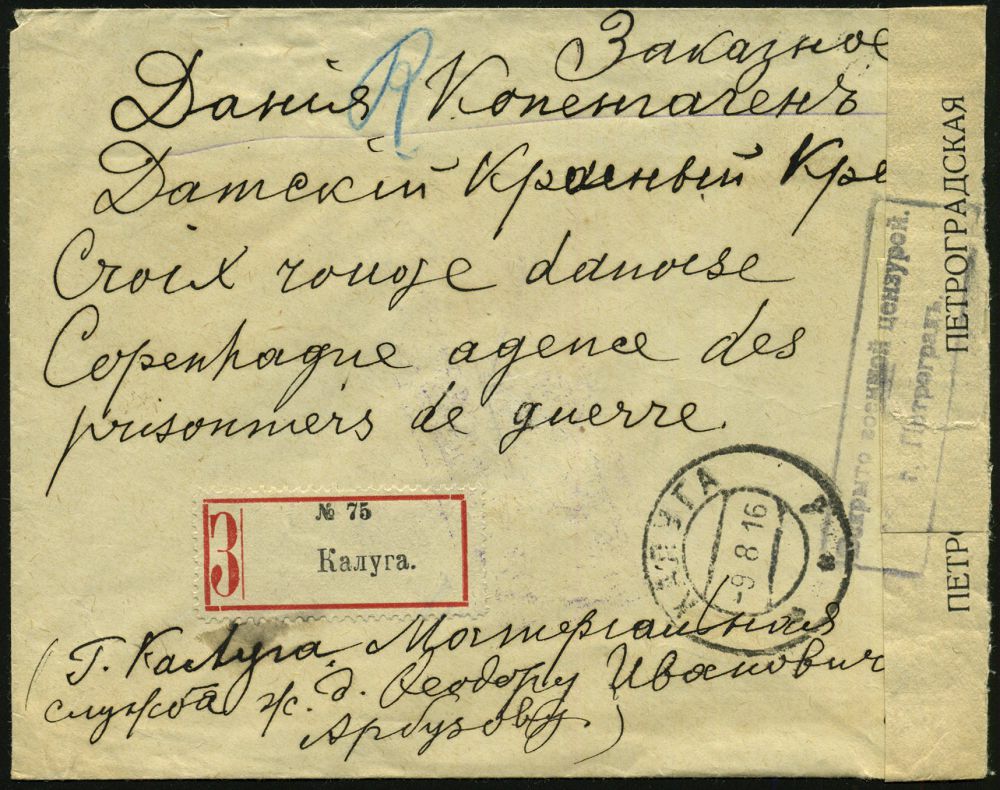 Заказное
Данія Копенгагенъ
R
Датскій Красный Кре
Croix rouge danoise
Copenhague agence des
prisonniers de guerre.
З
№ 75
Калуга.
КАЛУГА
-9 8 16
(Г. Калуга. Матеріальная
служба ж. д. Ѳеодору Ивановичу
Арбузову.)
ПЕТРОГРАДСКАЯ
ПЕТРО
Вскрыто военной цензурой.
г. Петроградъ.